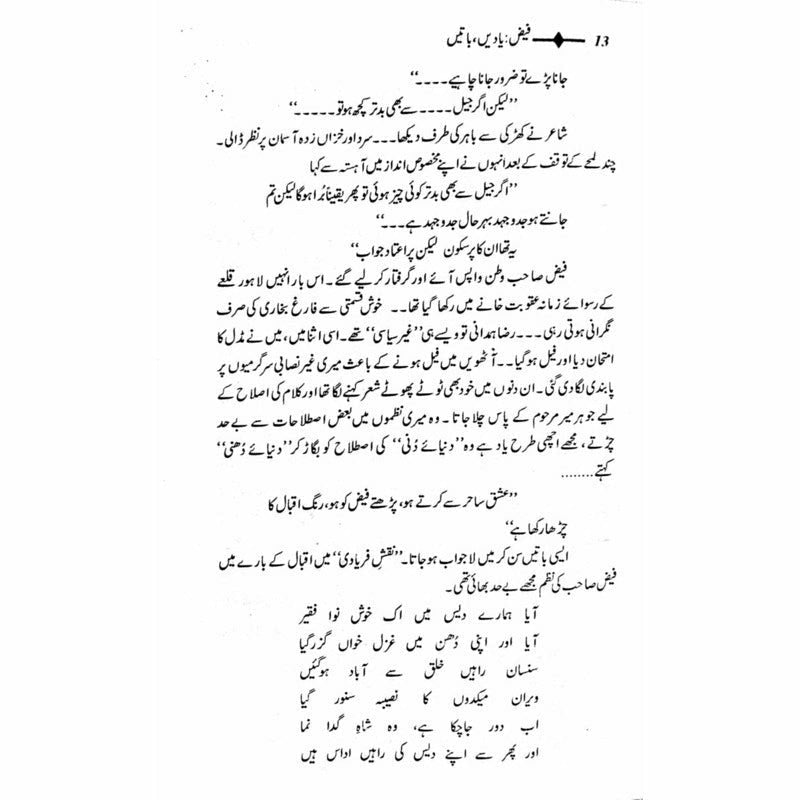 فیض: یادیں، باتیں 13
جانا پڑے تو ضرور جانا چاہیے ۔۔۔۔"
"لیکن اگر جیل ۔۔۔۔ سے بھی بدتر کچھ ہو تو ۔۔۔۔۔"
شاعر نے کھڑکی سے باہر کی طرف دیکھا ۔۔۔ سرد اور خزاں زدہ آسمان پر نظر ڈالی ۔
چند لمحے کے توقف کے بعد انہوں نے اپنے مخصوص انداز میں آہستہ سے کہا
"اگر جیل سے بھی بدتر کوئی چیز ہوئی تو پھر یقیناً بُرا ہوگا لیکن تم
جانتے ہو جدوجہد بہر حال جدوجہد ہے ۔۔۔"
یہ تھا ان کا پرسکون لیکن پر اعتماد جواب"
فیض صاحب وطن واپس آئے اور گرفتار کر لیے گئے ۔ اس بار انہیں لاہور قلعے
کے رسوائے زمانہ عقوبت خانے میں رکھا گیا تھا ۔۔ خوش قسمتی سے فارغ بخاری کی صرف
نگرانی ہوتی رہی ۔۔۔ رضا ہمدانی تو ویسے ہی "غیر سیاسی" تھے ۔ اسی اثنا میں، میں نے مڈل کا
امتحان دیا اور فیل ہو گیا ۔۔ آٹھویں میں فیل ہونے کے باعث میری غیر نصابی سرگرمیوں پر
پابندی لگا دی گئی ۔ ان دنوں میں خود بھی ٹوٹے پھوٹے شعر کہنے لگا تھا اور کلام کی اصلاح کے
لیے جوہر میر مرحوم کے پاس چلا جاتا ۔ وہ میری نظموں میں بعض اصطلاحات سے بے حد
چڑتے ، مجھے اچھی طرح یاد ہے وہ "دنیائے دُنی" کی اصطلاح کو بگاڑ کر "دنیائے دُھنی"
کہتے ........
"عشق ساحر سے کرتے ہو، پڑھتے فیض کو ہو، رنگ اقبال کا
چڑھا رکھا ہے"
ایسی باتیں سن کر میں لاجواب ہو جاتا ۔ "نقشِ فریادی" میں اقبال کے بارے میں
فیض صاحب کی نظم مجھے بے حد بھائی تھی ۔
آیا ہمارے دیس میں اک خوش نوا فقیر
آیا اور اپنی دُھن میں غزل خواں گزر گیا
سنسان راہیں خلق سے آباد ہو گئیں
ویران میکدوں کا نصیبہ سنور گیا
اب دور جا چکا ہے، وہ شاہِ گدا نما
اور پھر سے اپنے دیس کی راہیں اداس ہیں